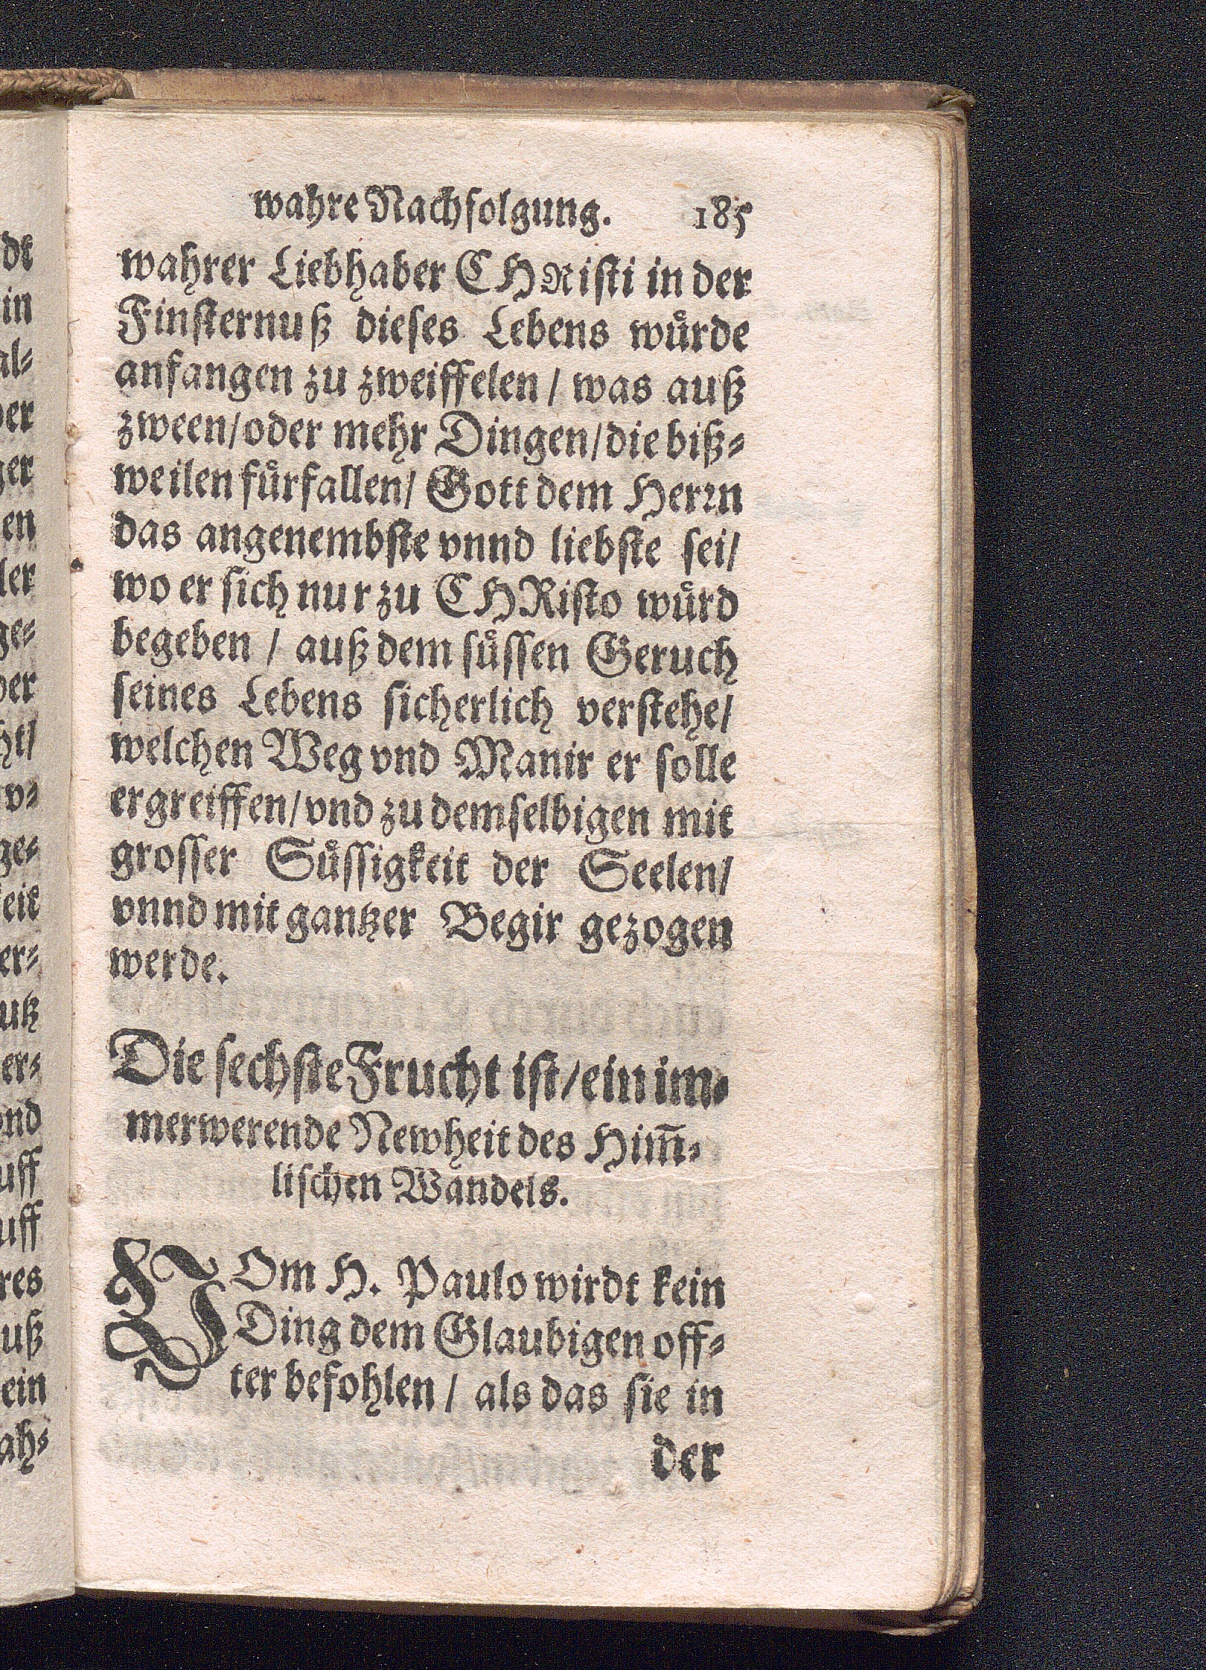 wahre Nachfolgung. 185
wahrer Liebhaber CHRisti in der
Finsternuß dieses Lebens wuͤrde
anfangen zu zweiffelen / was auß
zween/oder mehr Dingen/die biß⸗
weilen fuͤrfallen/ Gott dem Herꝛn
das angenembste vnnd liebste sei/
wo er sich nur zu CHRisto wuͤrd
begeben / auß dem suͤssen Geruch
seines Lebens sicherlich verstehe/
welchen Weg vnd Manir er solle
ergreiffen/vnd zu demselbigen mit
grosser Suͤssigkeit der Seelen/
vnnd mit gantzer Begir gezogen
werde.
Die sechste Frucht ist/ein im⸗
merwerende Newheit des Him̃⸗
lischen Wandels.
VOm H. Paulo wirdt kein
Ding dem Glaubigen off⸗
ter befohlen / als das sie in
der